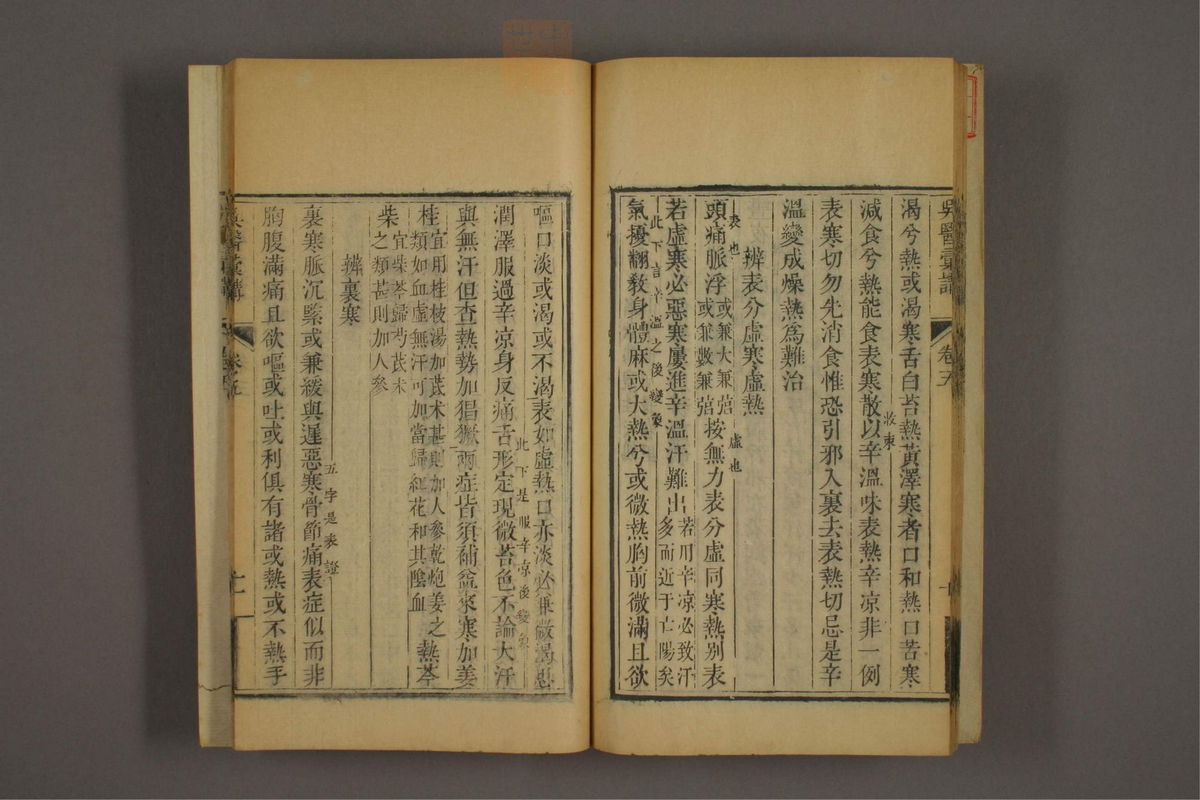 吳醫彙講 卷五
渴兮熱或渴寒舌白苔熱黃澤寒者口和熱口苦寒
減食兮熱能食表寒散以辛溫味表熱辛凉非一例
收束
表寒切勿先消食惟恐引邪入裏去表熱切忌是辛
溫變成燥熱爲難治
辨表分虛寒虛熱
頭痛脈浮或兼大兼弦或兼數兼弦按無力表分虛同寒熱別表
表也 虛也
若虛寒必惡寒屢進辛溫汗難出若用辛凉必致汗多而近于亡陽矣
此下言辛溫之後變象
氣擾翻敎身體麻或大熱兮或微熱胸前微滿且欲
嘔口淡或渴或不渴表如虛熱口亦淡必兼微渴思
潤澤服過辛凉身反痛舌形定現微苔色不論大汗
此下是服辛凉後變象
與無汗但查熱勢加猖獗兩症皆須補益來寒加姜
桂宜用桂枝湯加芪朮甚則加人參乾炮姜之類如血虛無汗可加當歸紅花和其陰血熱芩
柴宜柴芩歸芍芪朮之類甚則加人參
辨裏寒
裏寒脈沉緊或兼緩與遲惡寒骨節痛表症似而非
五字是表證
胸腹滿痛且欲嘔或吐或利俱有諸或熱或不熱手
吳醫彙講 卷五 十一